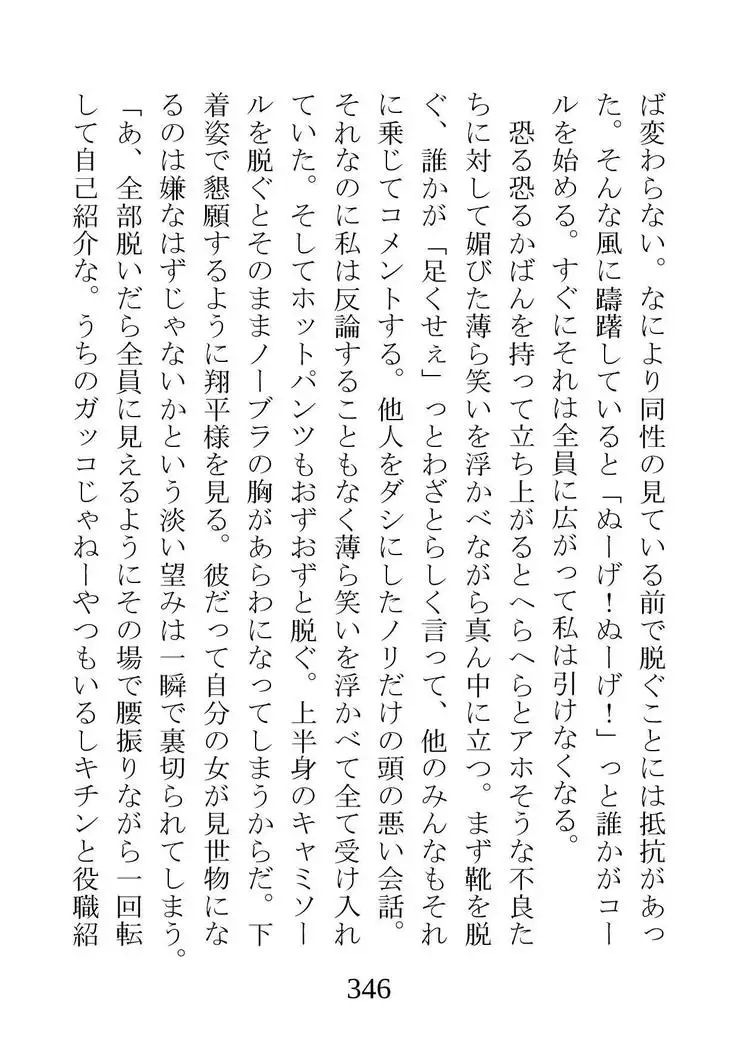 ば変わらない。なにより同性の見ている前で脱ぐことには抵抗があっ
た。そんな風に躊躇していると「ぬーげ！ぬーげ！」っと誰かがコー
ルを始める。すぐにそれは全員に広がって私は引けなくなる。
恐る恐るかばんを持って立ち上がるとへらへらとアホそうな不良た
ちに対して媚びた薄ら笑いを浮かべながら真ん中に立つ。まず靴を脱
ぐ、誰かが「足くせぇ」っとわざとらしく言って、他のみんなもそれ
に乗じてコメントする。他人をダシにしたノリだけの頭の悪い会話。
それなのに私は反論することもなく薄ら笑いを浮かべて全て受け入れ
ていた。そしてホットパンツもおずおずと脱ぐ。上半身のキャミソー
ルを脱ぐとそのままノーブラの胸があらわになってしまうからだ。下
着姿で懇願するように翔平様を見る。彼だって自分の女が見世物にな
るのは嫌なはずじゃないかという淡い望みは一瞬で裏切られてしまう。
「あ、全部脱いだら全員に見えるようにその場で腰振りながら一回転
して自己紹介な。うちのガッコじゃねーやつもいるしキチンと役職紹
346